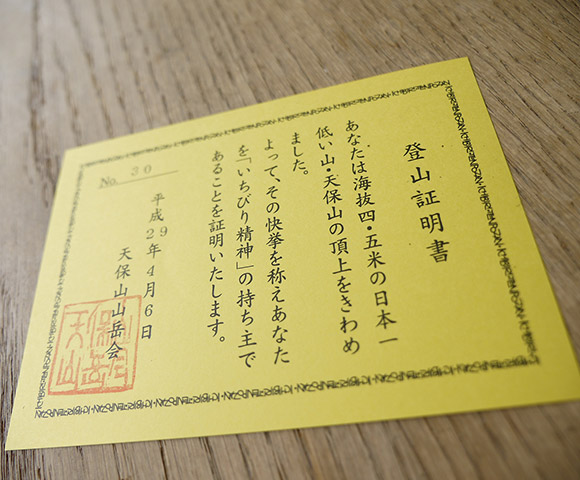 登山証明書
あなたは海抜四・五米の日本一
低い山・天保山の頂上をきわめ
ました。
よって、その快挙を称えあなた
を「いちびり精神」の持ち主で
あることを証明いたします。
平成29年4月6日
天保山山岳会
No. 30